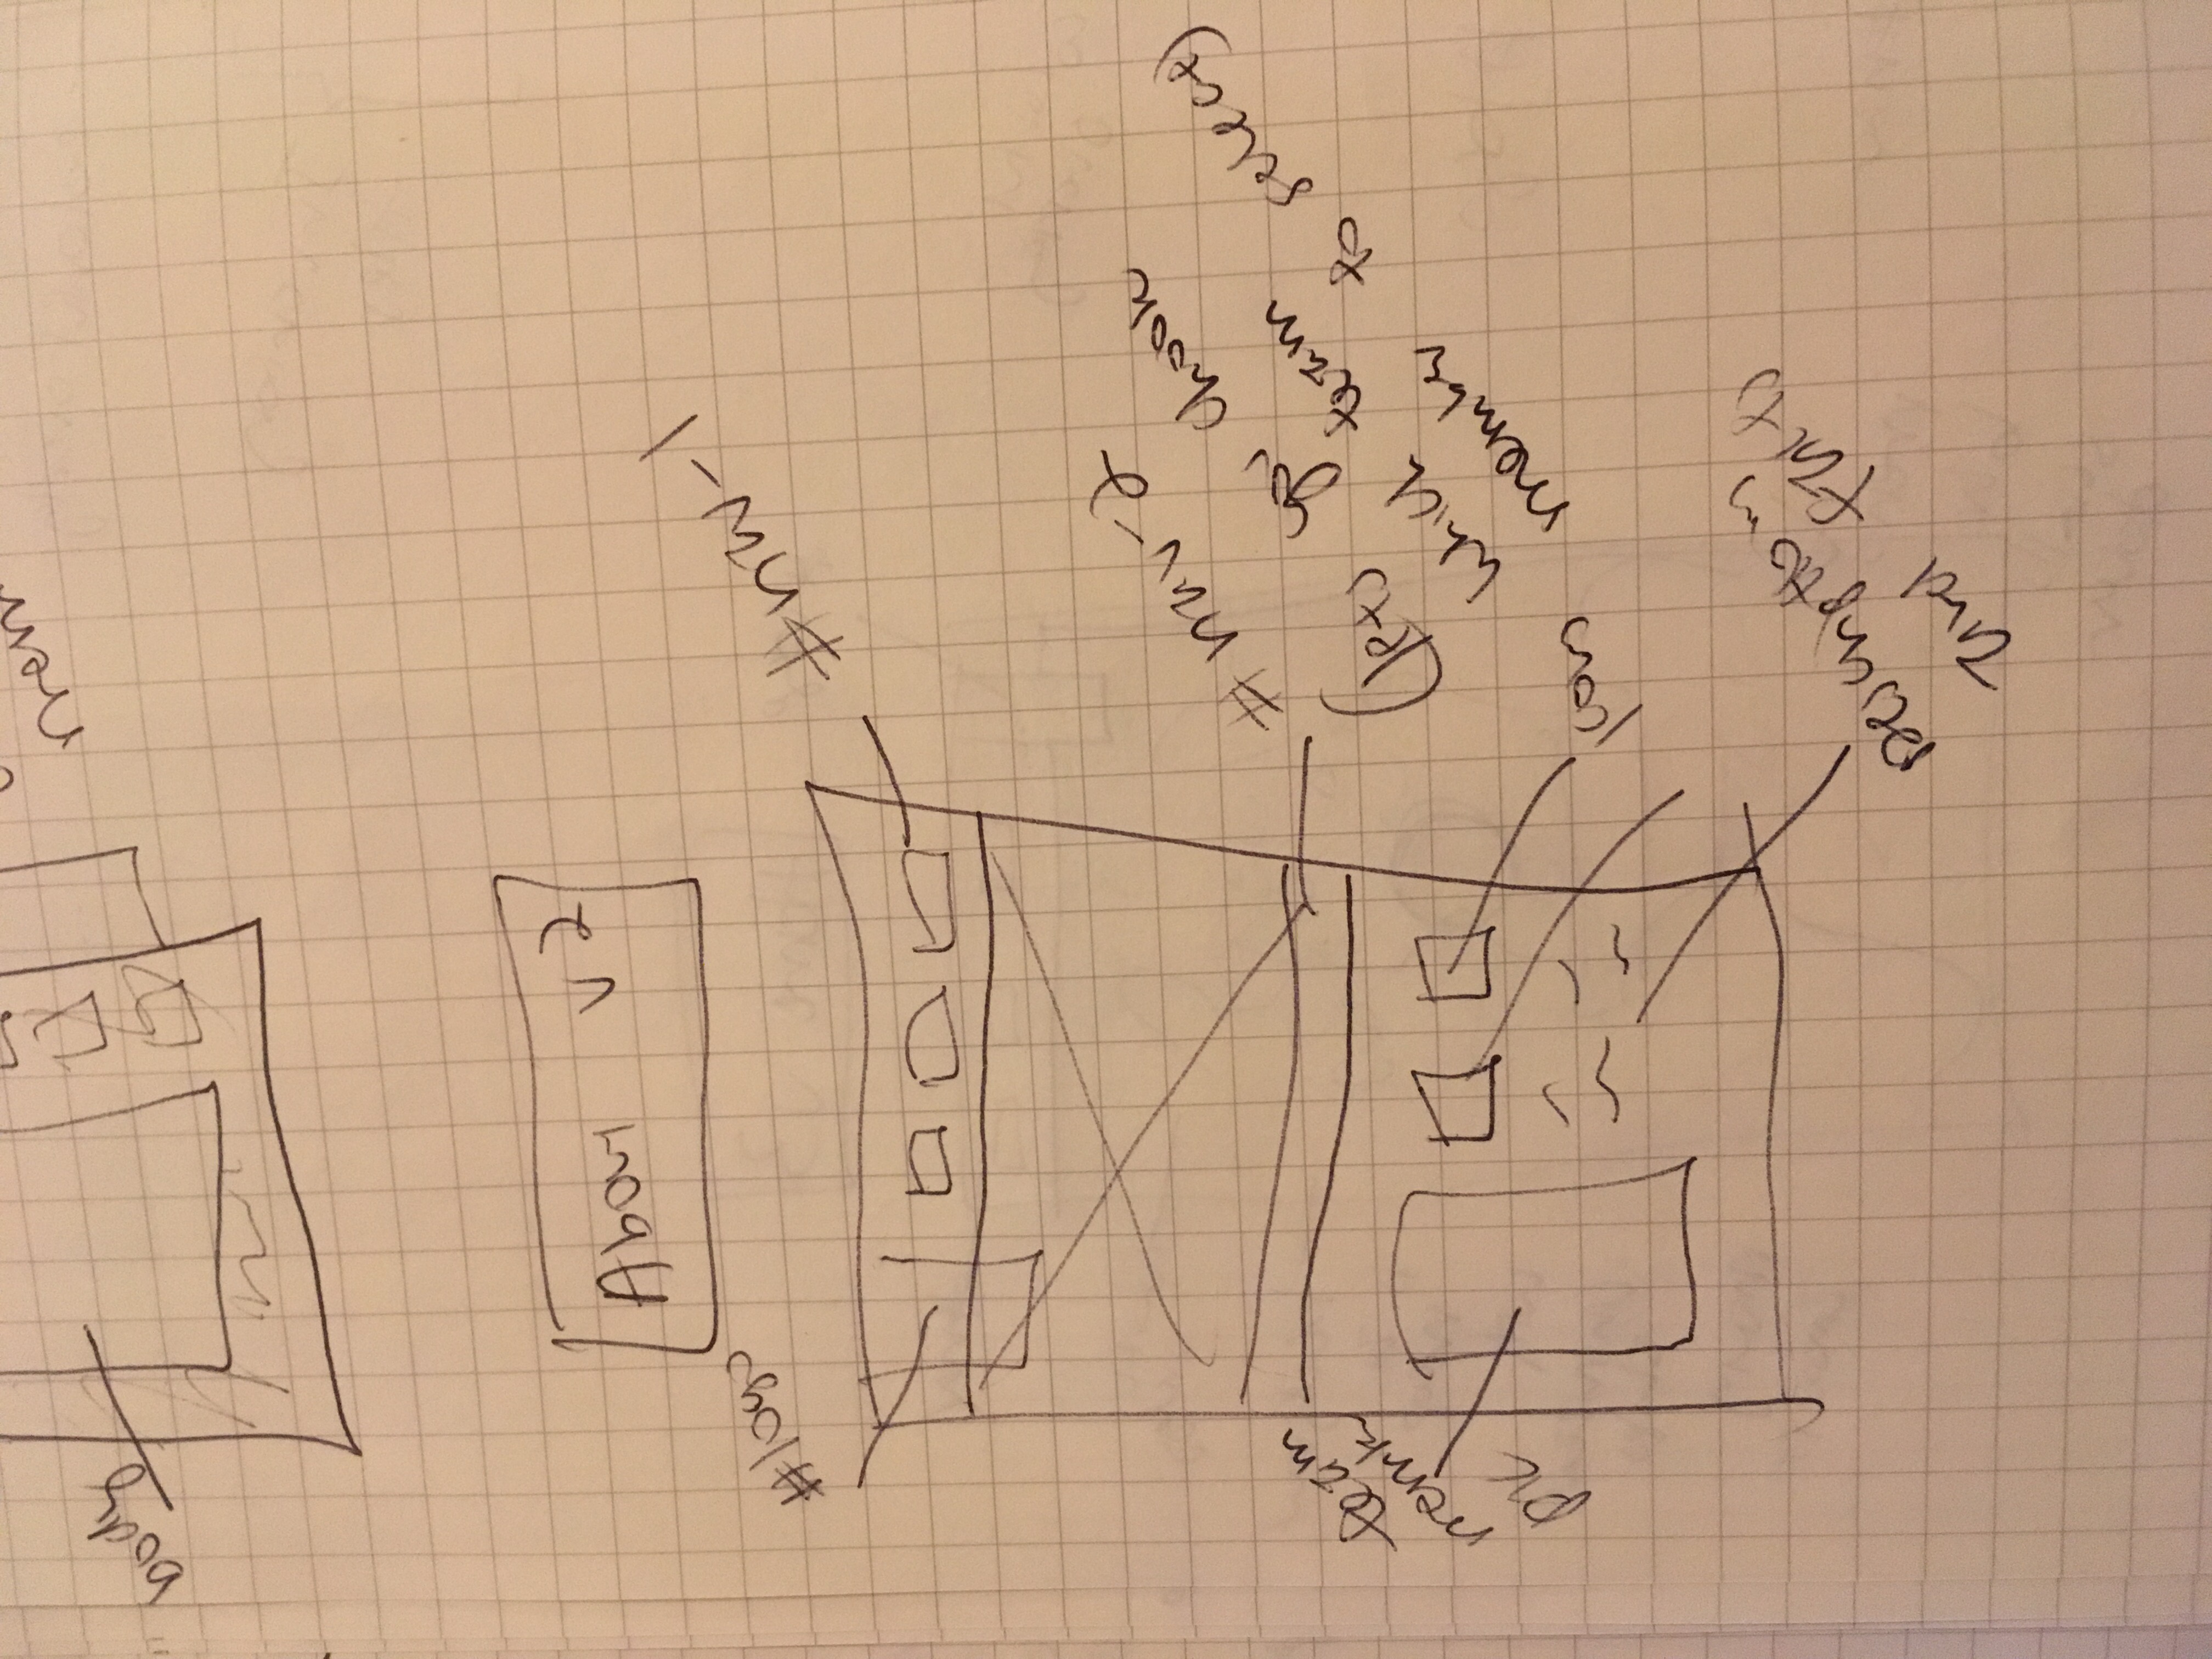 body
About v2
#logo
#nav-1
#nav-2
(lets you choose
which team
member to select)
team
member
pic
icons
descriptions
and facts